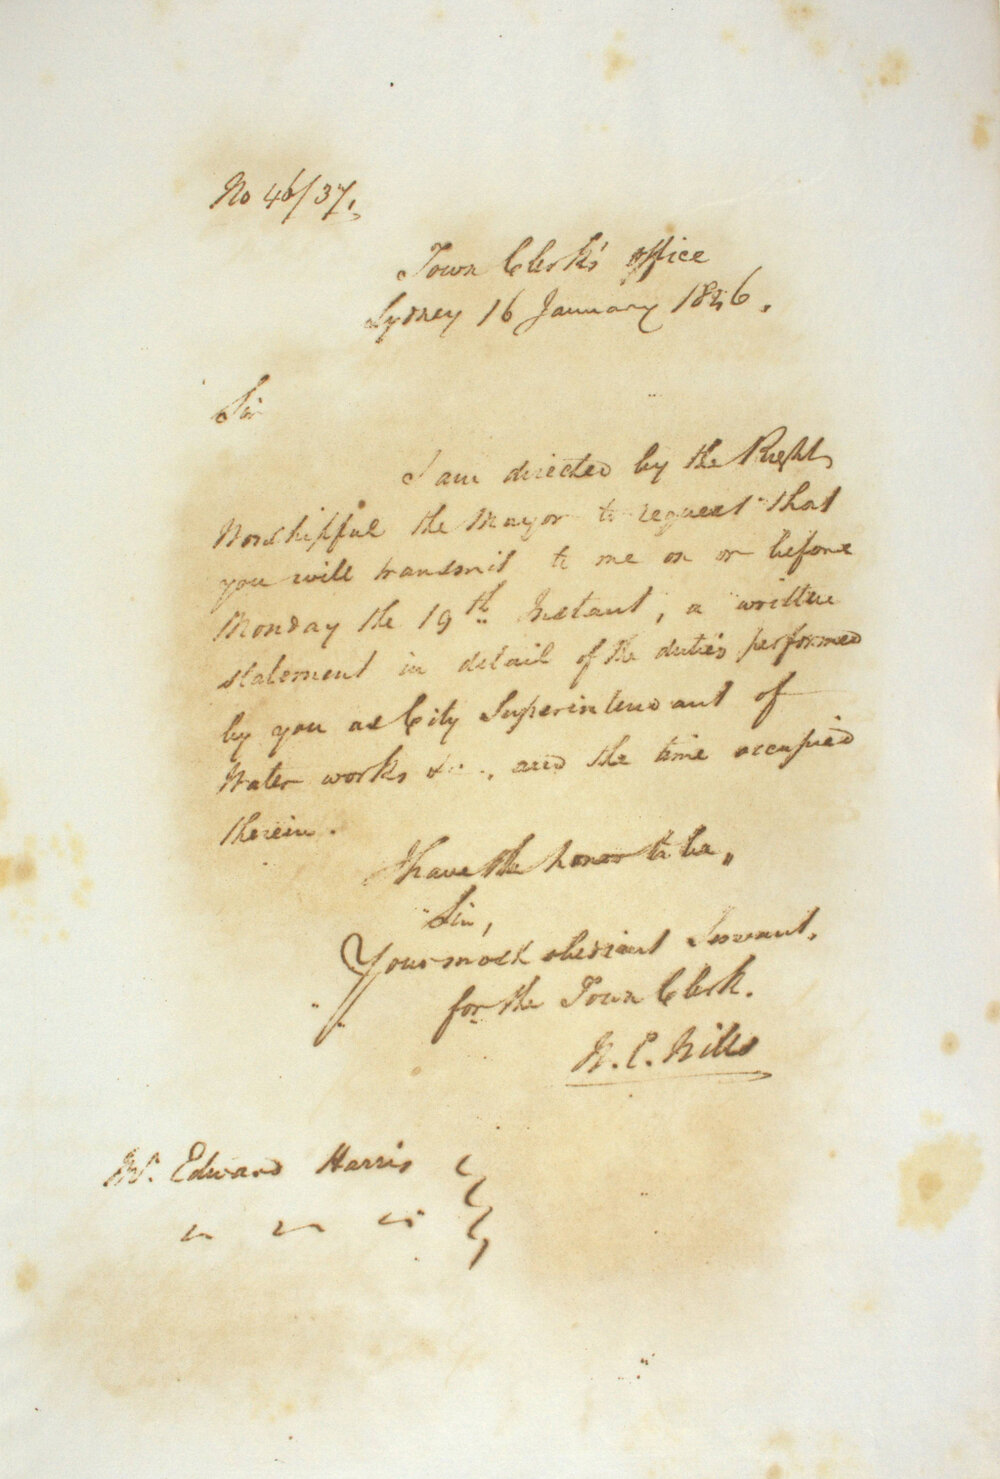 No 46/37.
Town Clerk's office
Sydney 16 January 1846.
Sir
I am directed by the Right
Worshipful the Mayor to request that
you will transmit to me on or before
Monday the 19th Instant, a written
statement in detail of the duties performed
by you as City Superintendant of
Water works &c., and the time occupied
therein.
I have the honor to be,
Sir,
Your most obedient Servant,
for the Town Clerk.
W. C. Wills
Mr. Edward Harris